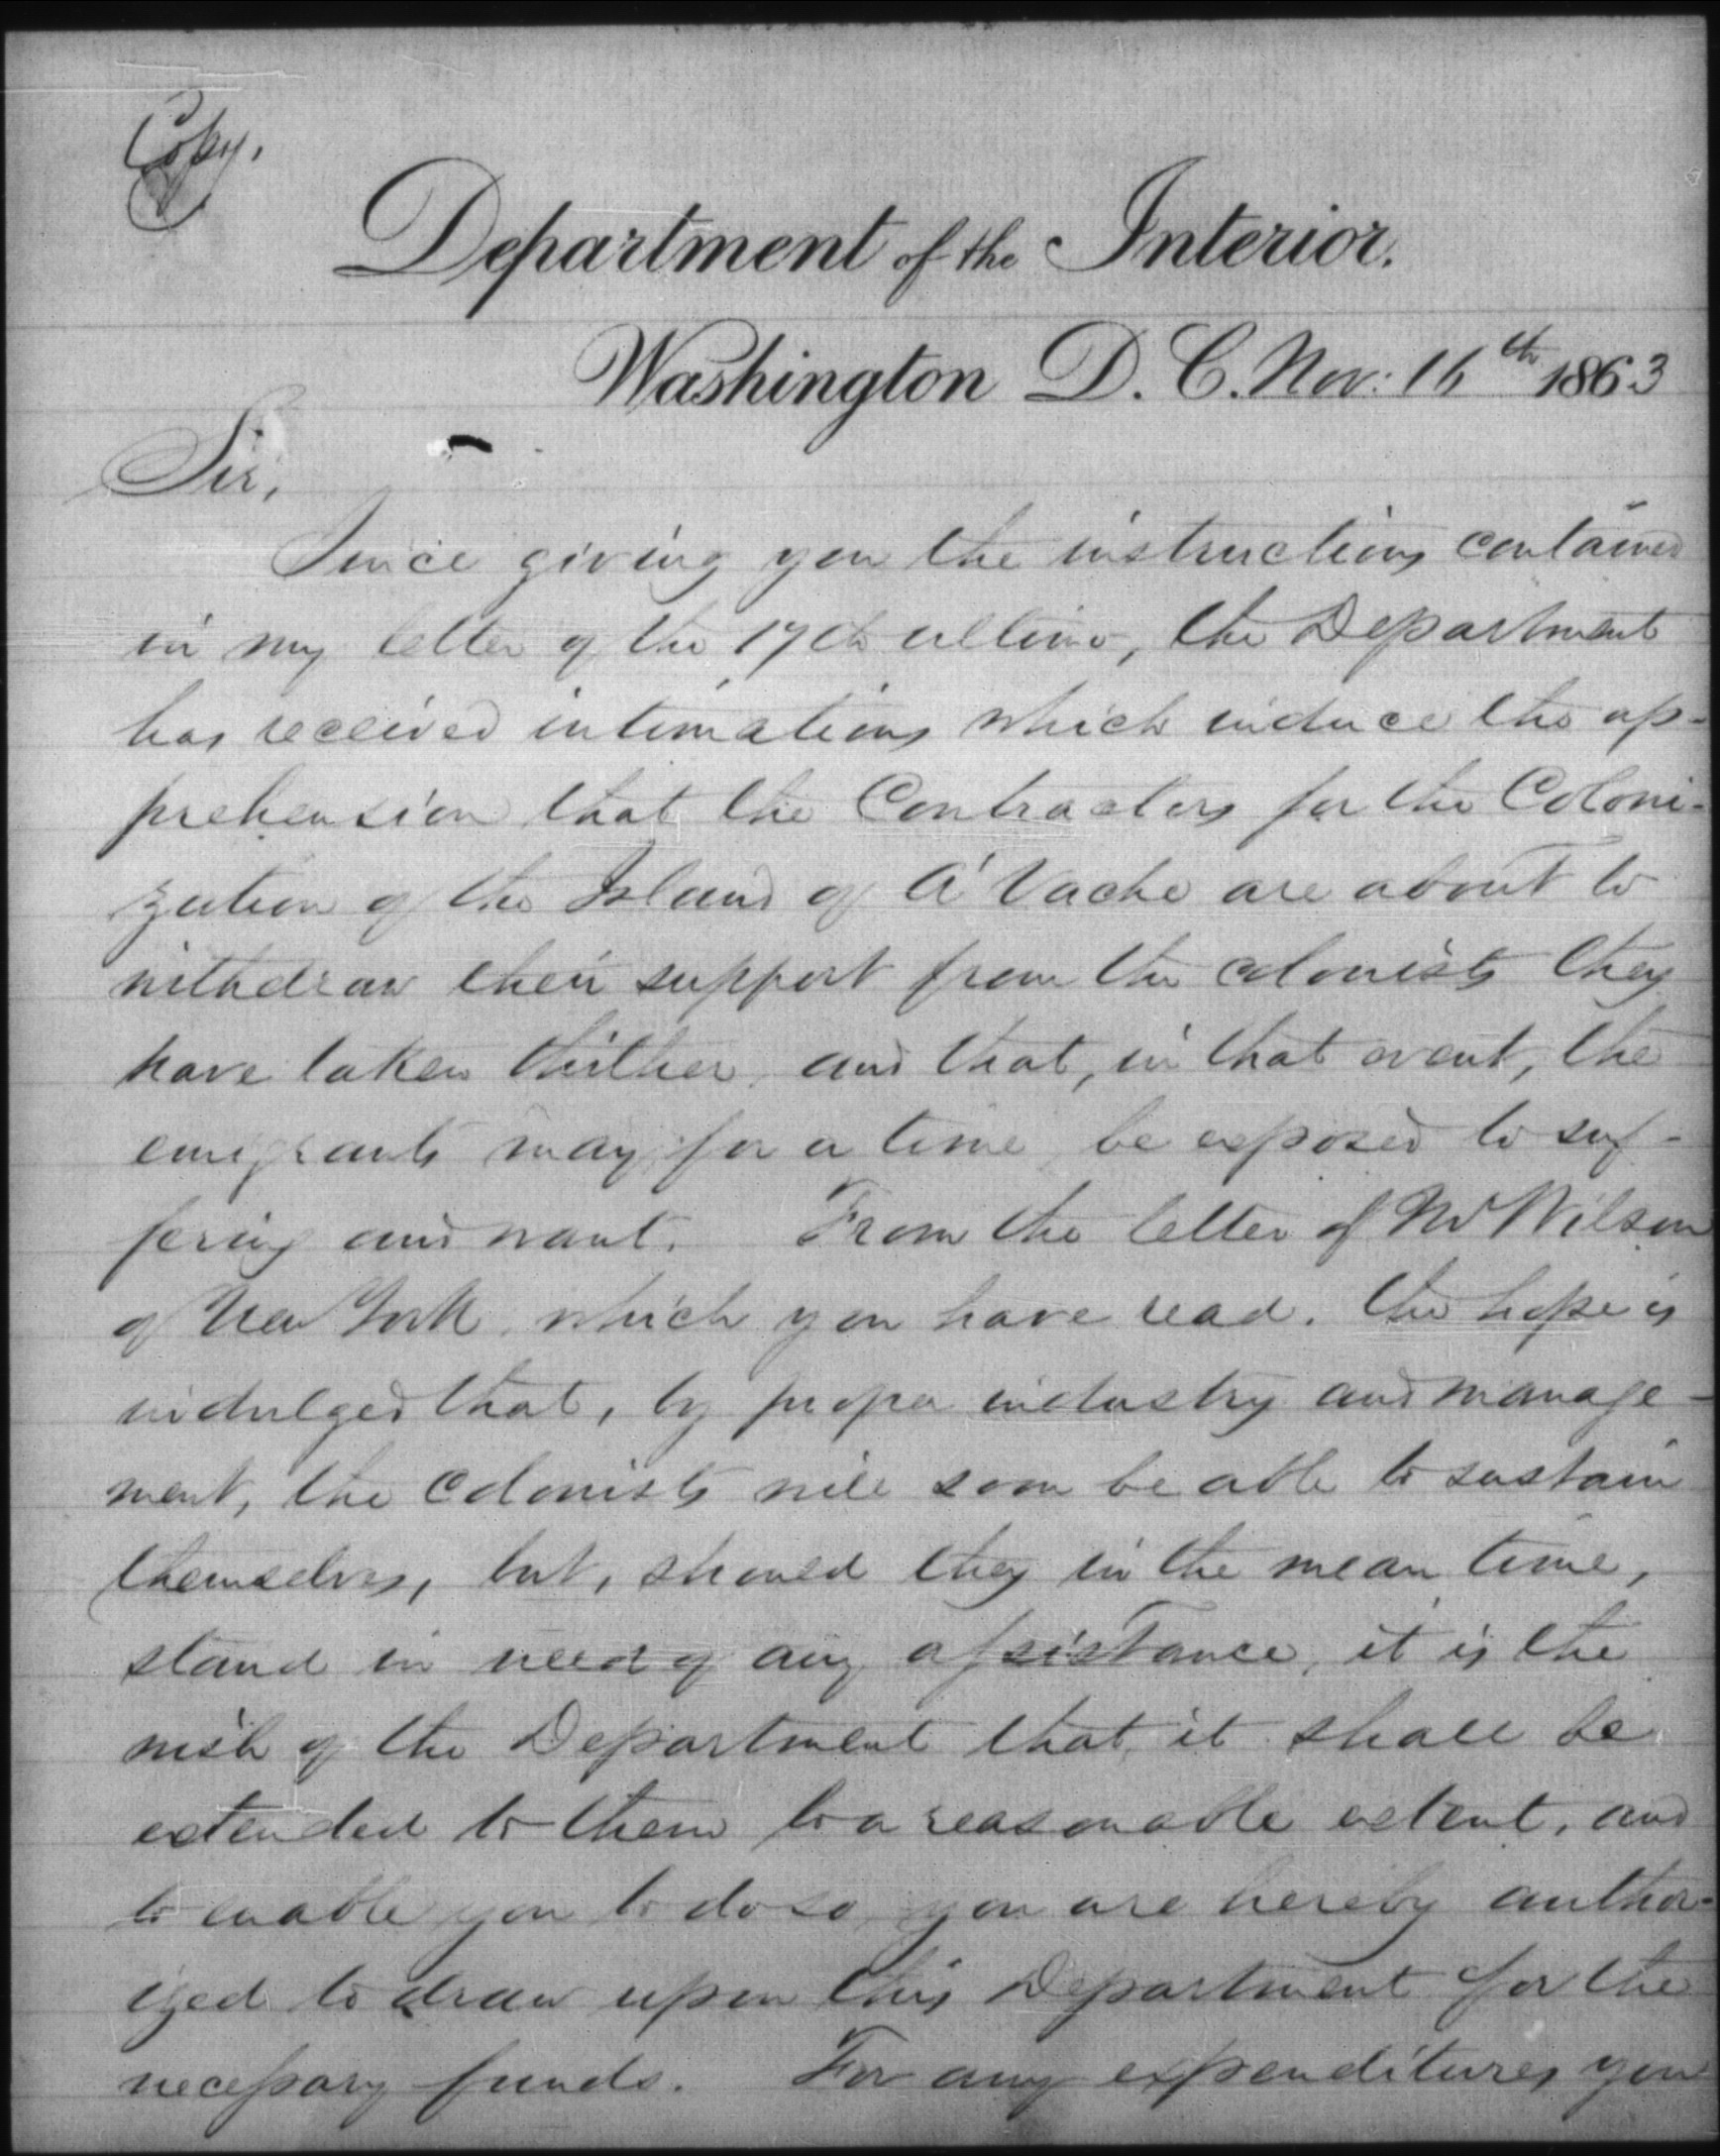 Copy.
Department of the Interior.
Washington D. C. Nov: 16th 1863
Sir,
Since giving you the instructions contained
in my letter of the 17th ultimo, the Department
has received intimations which induce the ap-
prehension that the Contractors for the Coloni-
zation of the Island of A'Vache are about to
withdraw their support from the colonists they
have taken thither, and that, in that event, the
emigrants may for a time be exposed to suf-
fering and want. From the letter of Mr Wilson
of New York which you have read. the hope is
indulged that, by proper industry and manage-
ment, the Colonists will soon be able to sustain
themselves, but, should they in the mean time,
stand in need of any assistance, it is the
wish of the Department that, it shall be
extended to them to a reasonable extent, and
to enable you to do so you are hereby author-
ized to draw upon this Department for the
necessary funds. For any expenditures you